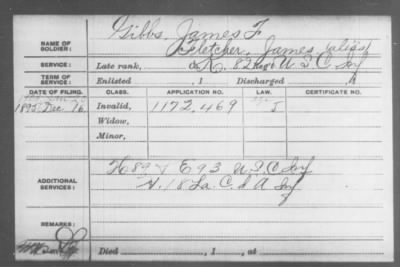 NAME OF SOLDIER:
Gibbs, James F
Fletcher, James (alias)
SERVICE:
Late rank, K. 82 Reg't U S C Inf
TERM OF SERVICE:
Enlisted , 1 Discharged , 1
DATE OF FILING. CLASS. APPLICATION NO. LAW. CERTIFICATE NO.
1895 Dec. 16. Invalid, 1172,469
Widow,
Minor,
ADDITIONAL SERVICES:
H 89 & E 93 U.S.C. Inf
H. 18 La. C. d A Inf
REMARKS:
Died , 1 , at